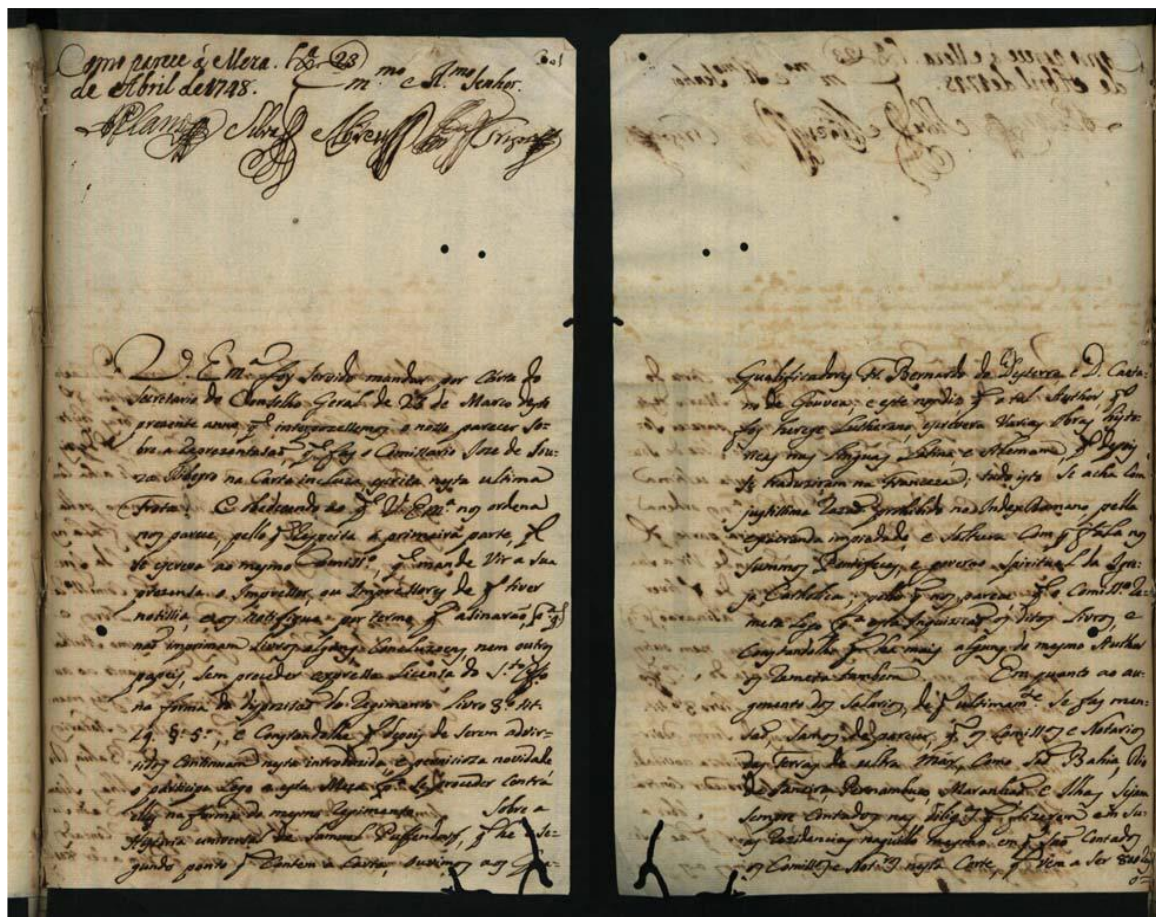 Como parece á Meza. Lx.ª 23
de Abril de 1748.
m.mo e R.mo Senhor.
Silva Abreu Trigozo
V. Em.ª foy servido mandar por Carta do
Secretario do Conselho Geral de 23 de Março deste
presente anno, q̃ interpozessemos o nosso parecer so-
bre a Reprezentasaõ, q̃ fes o Comissario Joze de Sou-
za Ribeyro na Carta incluza escrita nesta ultima
Frota. E obedecendo ao q̃ V. Em.ª nos ordena
nos parece, pello q̃ Respeita á primeira parte, q̃
se escreva ao mesmo Comiss.º, q̃ mande vir a sua
prezensa o Impressor, ou Impressores de q̃ tiver
notissia, e os notifique por termo q̃ asinaraõ, p.ª q̃
naõ imprimam Livros alguns, Concluzoens, nem outros
papeis, sem preceder expressa Licensa do S.to Off.º
na forma do disposto do Regimento Livro 3.º tit.
§. 5.º, e Constandolhe q̃ depois de serem adver-
tidos continuam nesta introduzida, e perniciosa novidade
o participe Logo a esta Meza p.ª se proceder contra
elles na forma do mesmo Regimento. Sobre a
Historia universal de Samuel Puffendorf, q̃ he o Se-
gundo ponto q̃ Contem a Carta, ouvimos aos Qua-
Qualificadores Fr. Bernardo do Desterro, e D. Caeta-
no de Gouvea; e este nos dis q̃ o tal Author, q̃
foy herege Lutherano, escrevera Varias Obras histo-
ricas nas Linguas Latina, e Alemam, q̃ depois
se traduziram na Franceza; tudo isto se acha com
justissima Razaõ prohibido no Index Romano pella
execranda impiedade, e soltura Com q̃ Fala nos
Summos Pontifices, e governo Spiritual da Igre-
ja Catholica; pello q̃ nos parece, q̃ o Comiss.rio Re-
meta Logo p.ª esta Inquiziçaõ os ditos Livros, e
Constandolhe q̃ ha mais alguns do mesmo Author
os Remeta tambem. Em quanto ao au-
gmento dos Salarios, de q̃ ultimam.te se fas men-
saõ, Somos de parecer, q̃ os Comissr.os e Notarios
das Terras do ultra Mar, Como saõ Bahia, Rio
de Janeiro, Pernambuco, Maranhaõ e Ilhas Sejam
sempre Contados nas dilig.as q̃ fizerem em su-
as Rezidencias naquillo mesmo em q̃ saõ Contados
os Comissr.os e Not.os nesta Corte, q̃ vem a ser